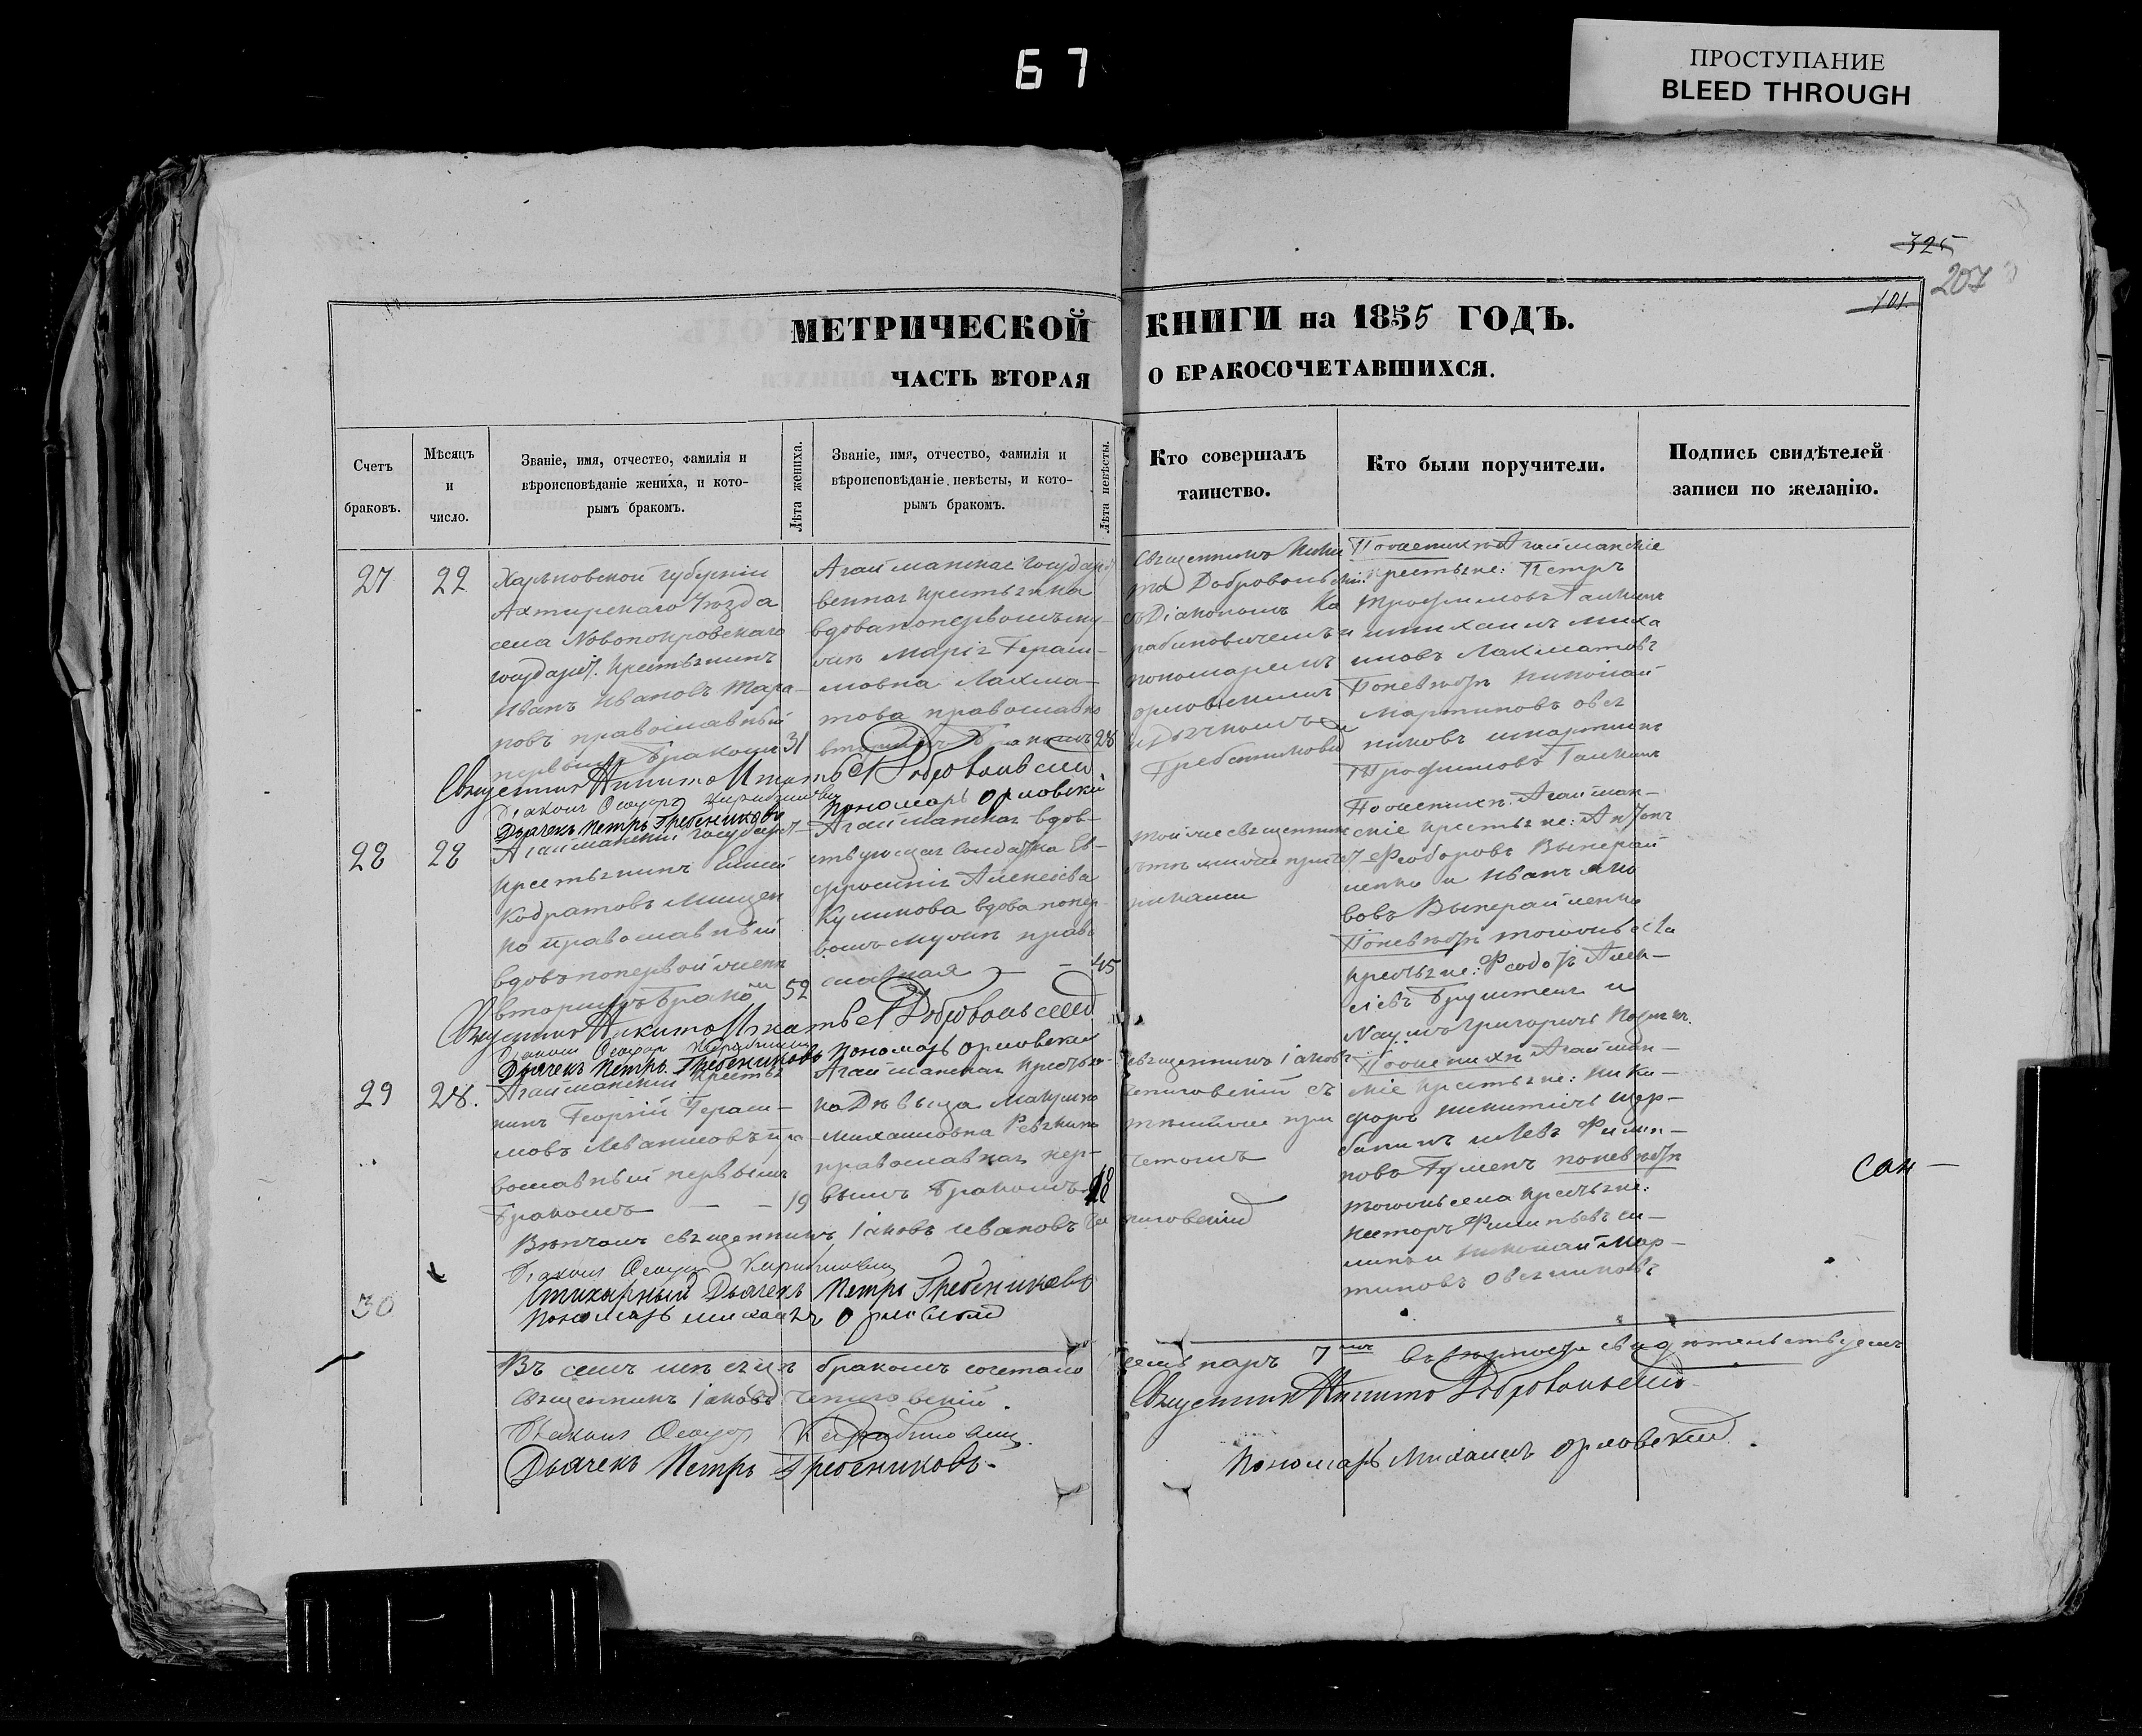 67
ПРОСТУПАНИЕ
BLEED THROUGH
325
207
101.
МЕТРИЧЕСКОЙ КНИГИ на 1855 ГОДЪ.
ЧАСТЬ ВТОРАЯ О БРАКОСОЧЕТАВШИХСЯ.
Счетъ
браковъ.
Мѣсяцъ
и
число.
Званіе, имя, отчество, фамилія и
вѣроисповѣданіе жениха, и кото-
рымъ бракомъ.
Лѣта жениха.
Званіе, имя, отчество, фамилія и
вѣроисповѣданіе невѣсты, и кото-
рымъ бракомъ.
Лѣта невѣсты.
Кто совершалъ
таинство.
Кто были поручители.
Подпись свидѣтелей
записи по желанію.
27
22
Харьковской губерніи
Ахтирскаго Уѣзда
села Новопокровскаго
государ. крестьянинъ
Иванъ Ивановъ Тара-
новъ православный
первымъ бракомъ
31
Агайманская государ
венная крестьянка
вдова по первомъ му-
жѣ Марія Гераси-
мовна Лахма-
това православно
вторымъ бракомъ
28
Священникъ Ники
та Добровольскій
съ Діакономъ Ка
рабиновичемъ и
пономаремъ
орловскимъ
и Дьячкомъ
Гребениковы
По женихѣ Агайманскіе
крестьяне: Петръ
Трофимовъ Галкинъ
и михаилъ миха
иловъ Лахматовъ
По невѣстѣ николай
мартиновъ овся
никовъ и мартинъ
Трофимовъ Галкинъ
Священникъ Никита Добровольскій
Діаконъ
Пономарь орловскій
Дьячекъ Петръ Гребениковъ
28
28
Агайманскій государ
крестьянинъ Елисей
Кодратовъ Мищен
ко православный
вдовъ по первой женѣ
вторымъ бракомъ
52
Агайманская вдов-
ствующая солдатка Ев-
фросинія Алексѣева
Куликова вдова по пер-
вомъ мужѣ право
славная
45
Тойже священникъ
съ тѣмже причет
никами
По женихѣ Агайман-
скіе крестьяне: Антонъ
Феодоровъ Выперай
ленко и Иванъ яко
вовъ Выперайленко
По невѣстѣ тогожъ села
крестьяне: Феодотъ Алек-
и
Наумъ Григорьевъ
Священникъ Никита Добровольскій
Діаконъ
Дьячекъ Петръ Гребениковъ Пономарь орловскій
29
28.
Агайманскій крестья
нинъ Георгій Гераси-
мовъ пра-
вославный первымъ
бракомъ
19
Агайманская крестьян-
ка Дѣвица Макрина
михаиловна
православная пер-
вымъ бракомъ
18
священникъ Іаковъ
съ
тѣмже при
четомъ
По женихѣ Агайман-
скіе крестьяне: Ники-
форъ никитичъ Щер-
и Левъ Филип-
повъ Гуменъ по невѣстѣ
тогожъ села крестьяне:
несторъ Филипьевъ
и николай Мар-
тиновъ Овсяниковъ
сан
Вѣнчалъ священникъ Іаковъ Ивановъ
Діаконъ
Стихарный Дьячекъ Петръ Гребениковъ
Пономарь михаилъ Орловскій
30
Въ семъ мѣсяцѣ бракомъ сочетано семь паръ 7 въ вѣрности свидѣтельствуемъ
священникъ Іаковъ
Священникъ Никита Добровольскій
Діаконъ Карабиновичъ
Дьячекъ Петръ Гребениковъ.
Пономарь Михаилъ Орловскій.